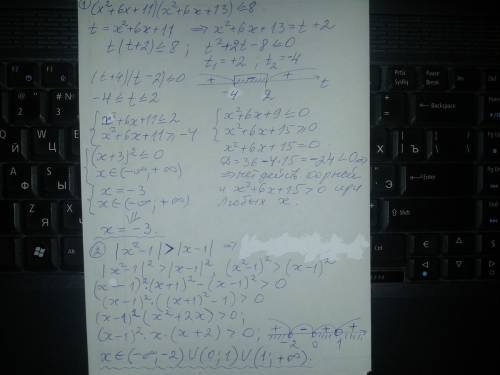 ① (x²+6x+11)(x²+6x+13)≤8
t=x²+6x+11 ⇒ x²+6x+13=t+2
t(t+2)≤8; t²+2t-8≤0
t₁=+2, t₂=-4
(t+4)(t-2)≤0 + - + t
-4 2
-4≤t≤2
{ x²+6x+11≤2 { x²+6x+9≤0
x²+6x+11≥-4 x²+6x+15≥0
{ (x+3)²≤0 x²+6x+15=0
x∈(-∞;+∞) D=36-4·15=-24<0⇒
{ x=-3 ⇒нет действ корней
x∈(-∞;+∞) и x²+6x+15>0 при
⇓ любых x.
x=-3.
② |x²-1|>|x-1| ⇒
|x²-1|²>|x-1|², (x²-1)²>(x-1)²
(x-1)²·(x+1)²-(x-1)²>0
(x-1)²·((x+1)²-1)>0
(x-1)²(x²+2x)>0;
(x-1)²·x·(x+2)>0; + - + +
-2 0 1
x∈(-∞;-2)∪(0;1)∪(1;+∞).